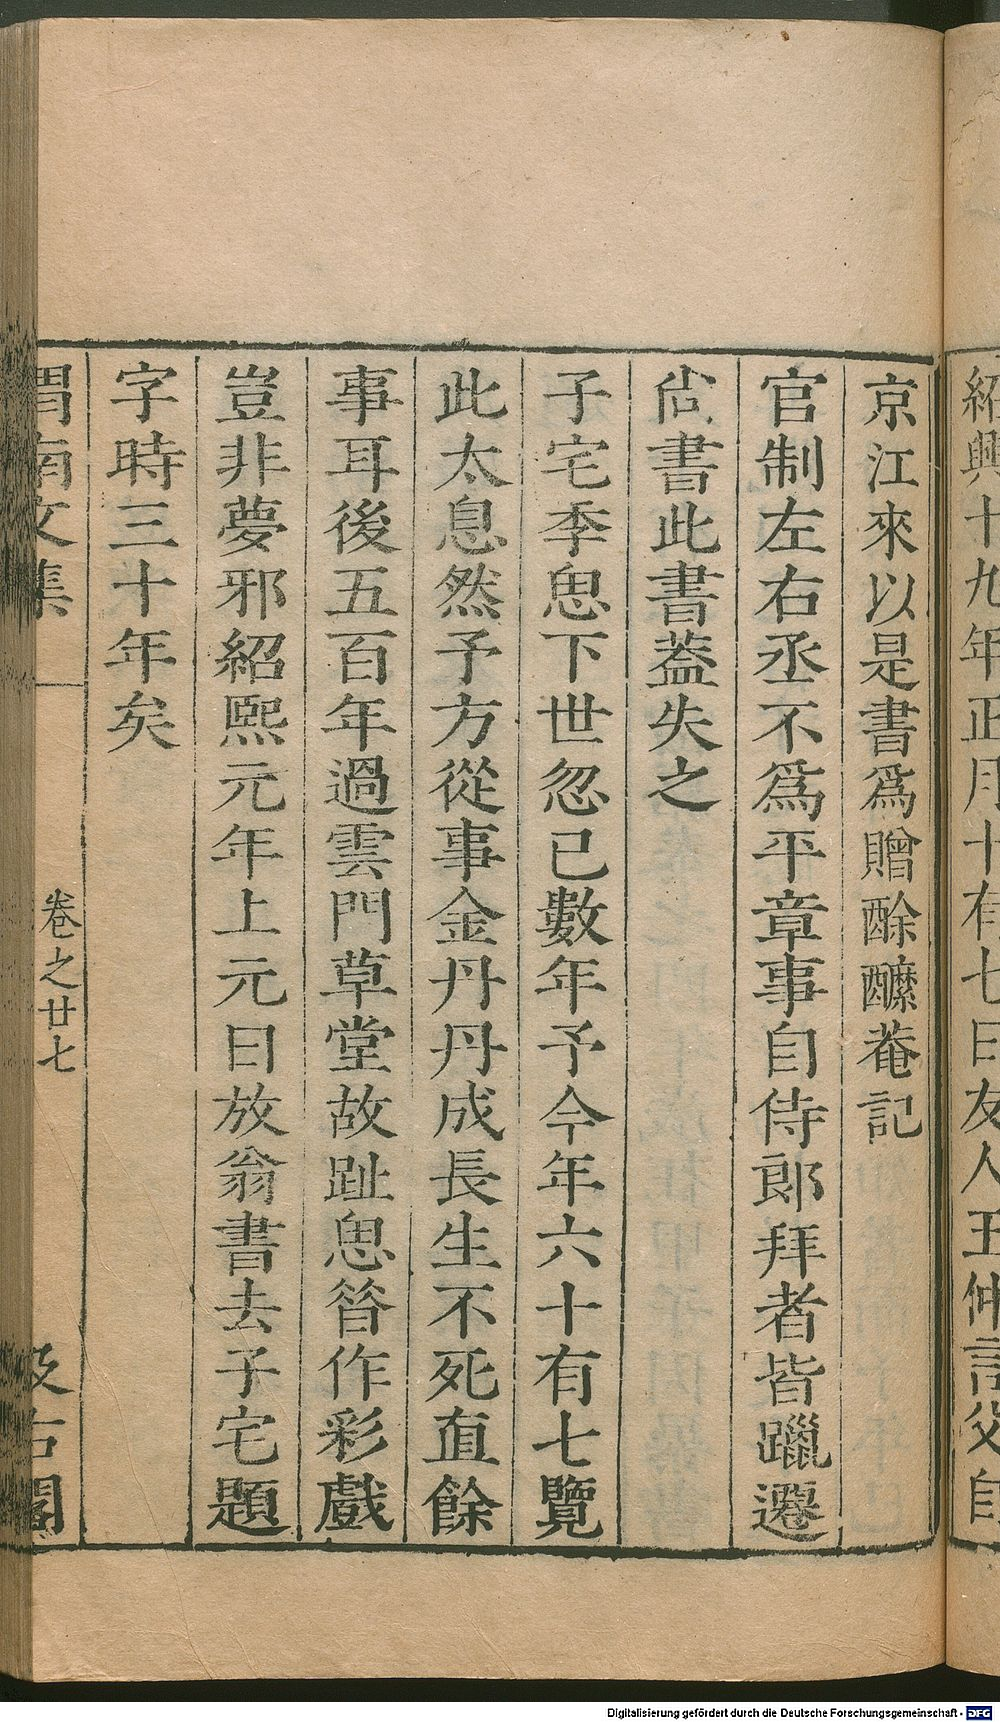 紹興十九年正月十有七日友人王仲言父自
京江來以是書爲贈酴醿菴記
官制左右丞不爲平章事自侍郎拜者皆躐遷
尙書此書葢失之
子宅季思下世忽已數年予今年六十有七覽
此太息然予方從事金丹丹成長生不死直餘
事耳後五百年過雲門草堂故趾思昝作彩戲
豈非夢邪紹熙元年上元日放翁書去子宅題
字時三十年矣
渭南文集
卷之廿七
汲古閣
Digitalisierung gefördert durch die Deutsche Forschungsgemeinschaft - DFG